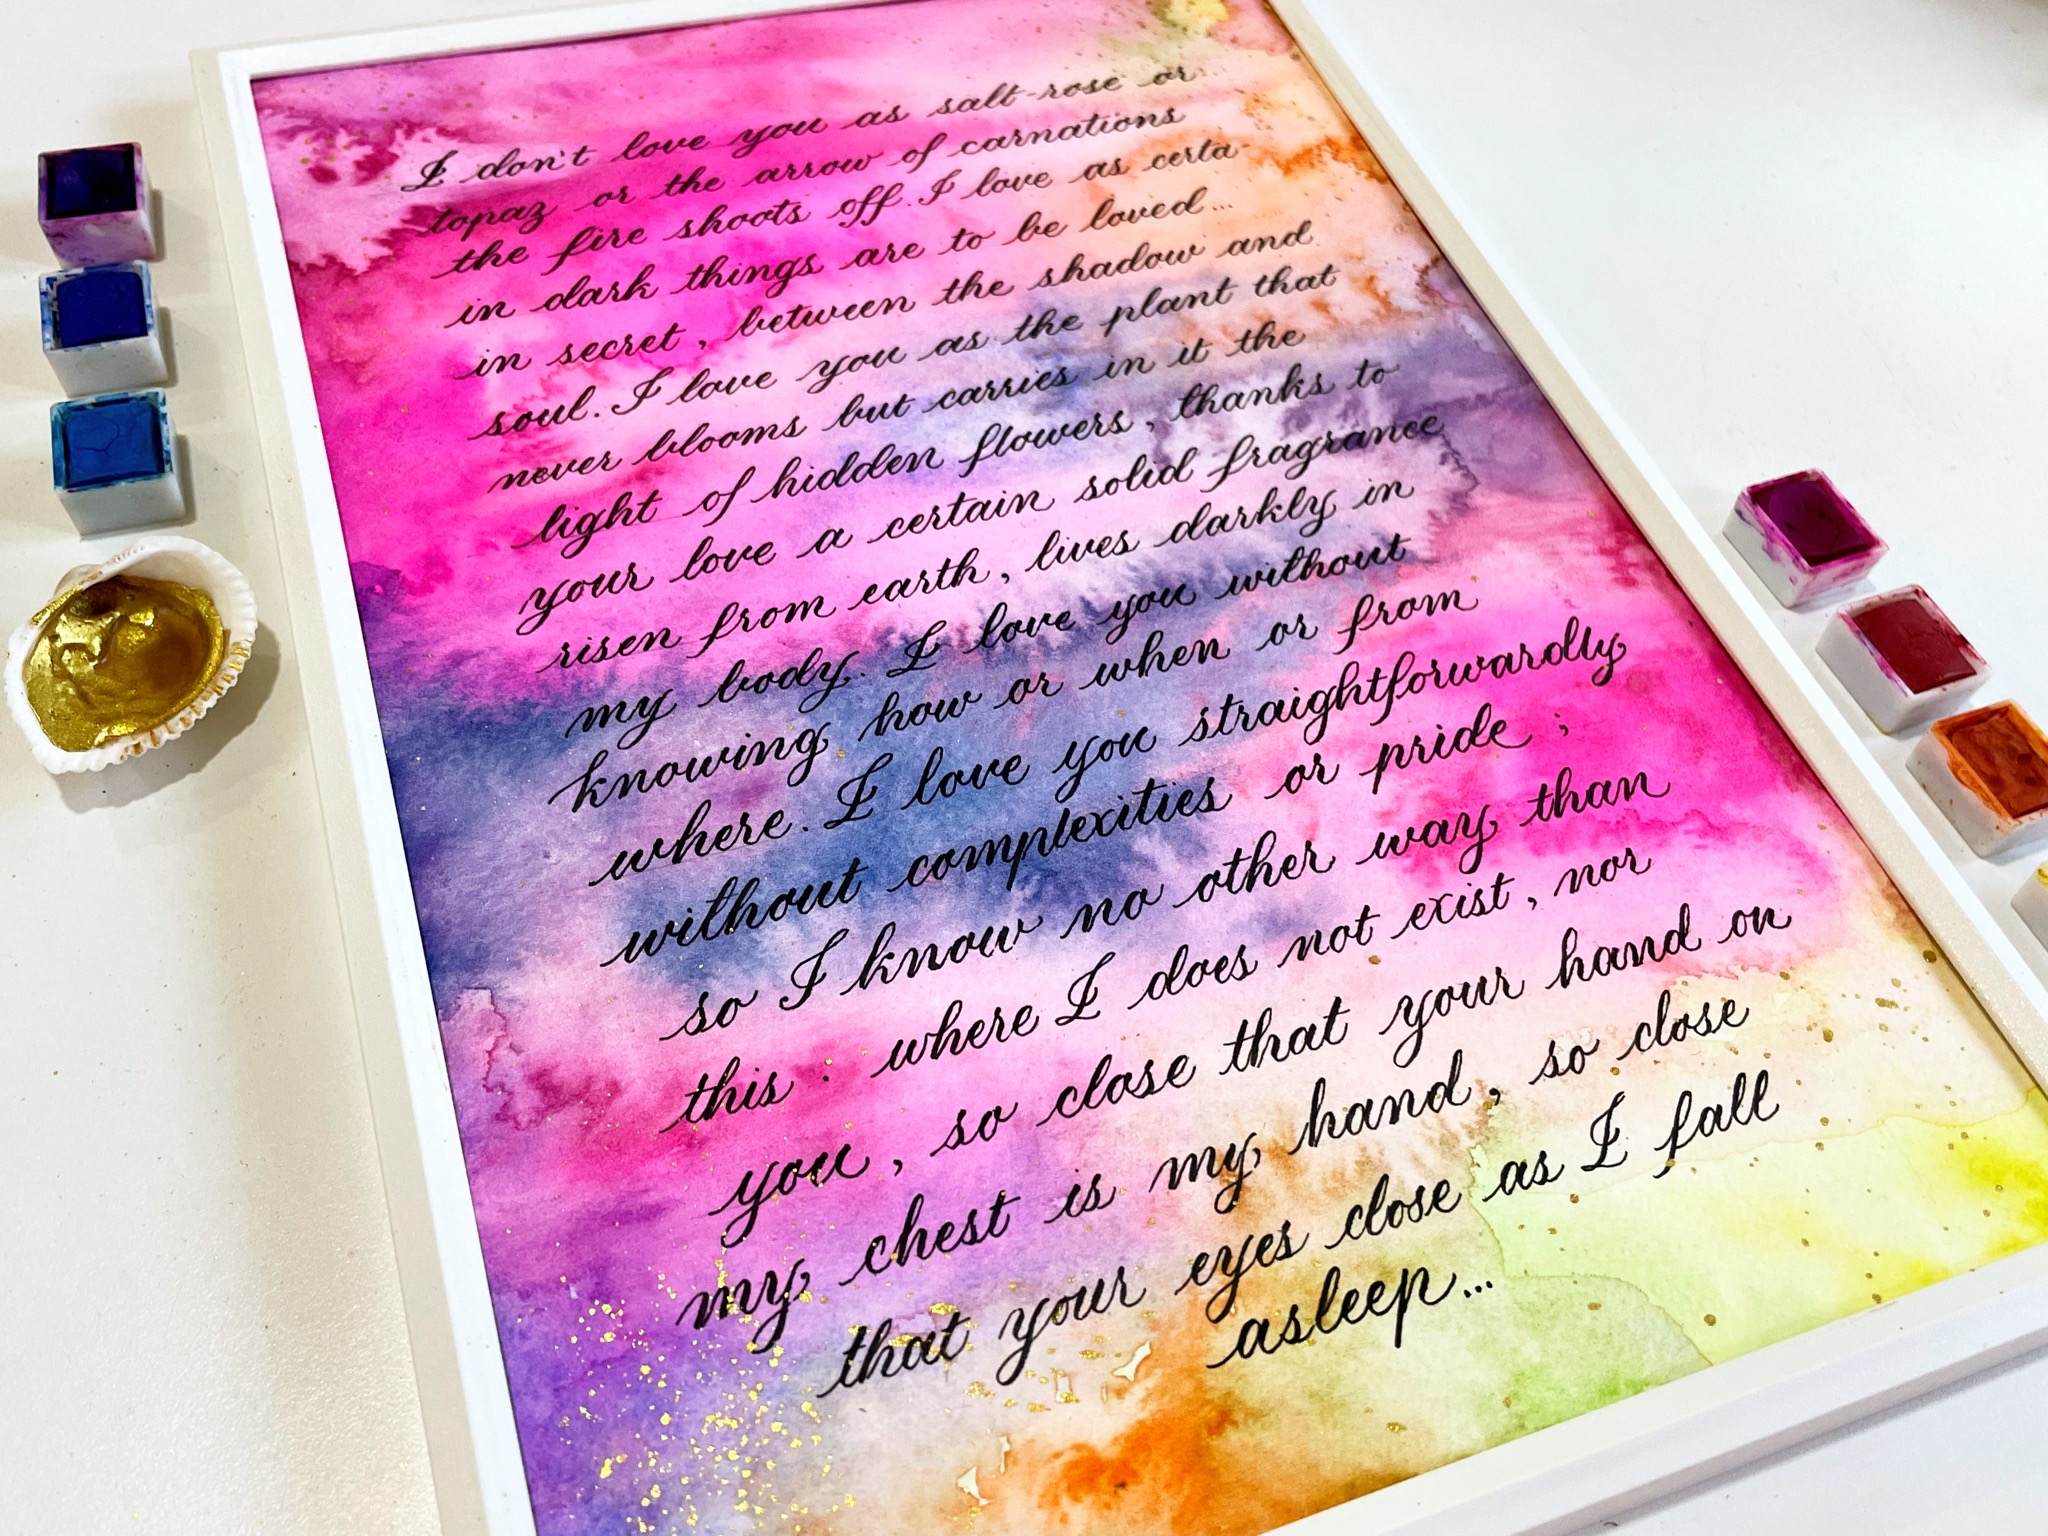 I don't love you as salt-rose or
topaz or the arrow of carnations
the fire shoots off. I love as certa-
in dark things are to be loved...
in secret, between the shadow and
soul. I love you as the plant that
never blooms but carries in it the
light of hidden flowers, thanks to
your love a certain solid fragrance
risen from earth, lives darkly in
my body. I love you without
knowing how or when or from
where. I love you straightforwardly
without complexities or pride ;
so I know no other way than
this : where I does not exist, nor
you, so close that your hand on
my chest is my hand, so close
that your eyes close as I fall
asleep...